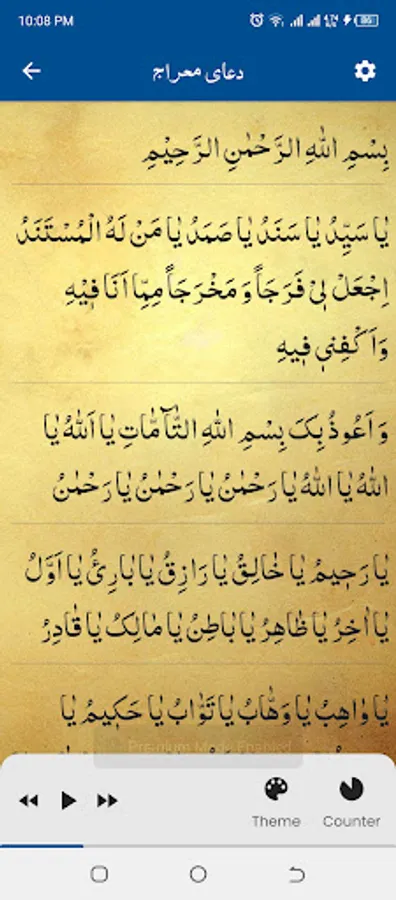 10:08 PM
86
دعای معراج
بِسْمِ اللهِ الرَّحْمٰنِ الرَّحِيْمِ
يٰا سَيِّدُ يٰا سَنَدُ يٰا صَمَدُ يٰا مَنْ لَهُ الْمُسْتَنَدُ
اِجْعَلْ لِىْ فَرَجَاً وَ مَخْرَجَاً مِمّٰا اَنَا فٖيْهِ
وَ اَكْفِنٖى فٖيهِ
وَ اَعُوذُ بِکَ بِسْمِ اللهِ التّٰآمّٰاتِ يٰا اَللهُ يٰا
اَللهُ يٰا اَللهُ يٰا رَحْمٰنُ يٰا رَحْمٰنُ يٰا رَحْمٰنُ
يٰا رَحٖيمُ يٰا خٰالِقُ يٰا رَازِقُ يٰا بٰارِئُ يٰا اَوَّلُ
يٰا اٰخِرُ يٰا ظٰاهِرُ يٰا بٰاطِنُ يٰا مٰالِکُ يٰا قٰادِرُ
يٰا وٰاهِبُ يٰا وَهّٰابُ يٰا تَوّٰابُ يٰا حَكٖيمُ يٰا
Premium Mode Enabled
Theme
Counter